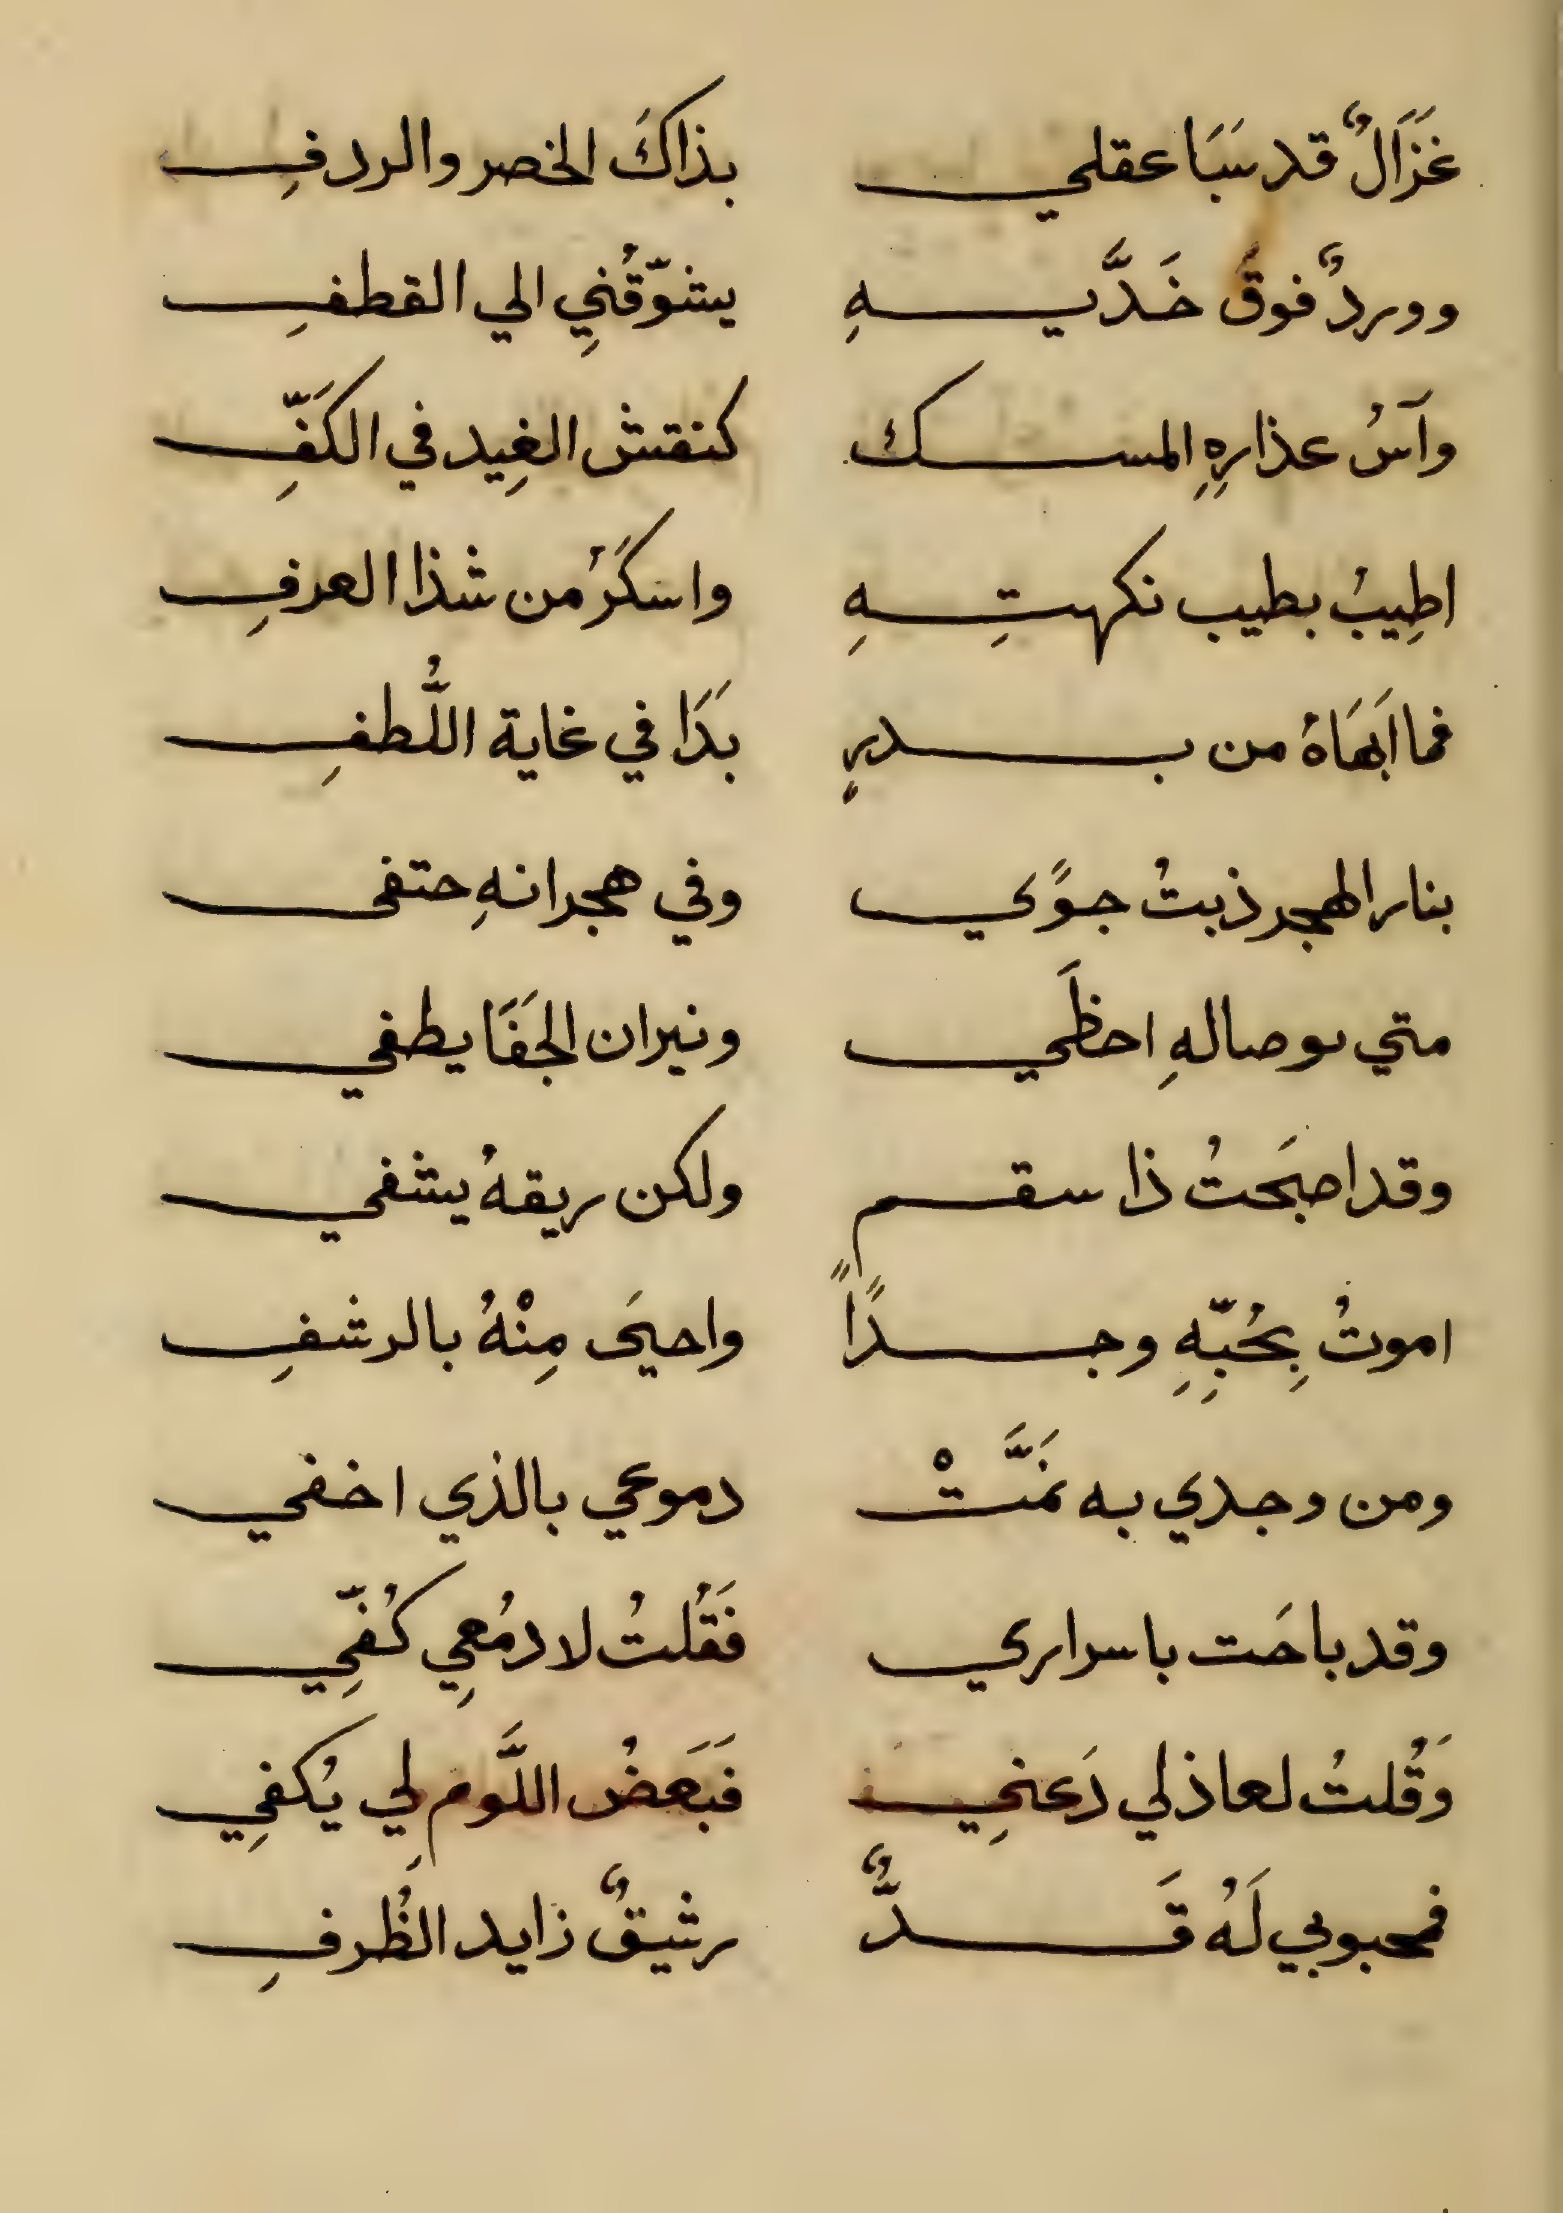 غَزَالٌ قد سَبَا عقلي بذاكَ الخصر والردفِ
ووردٌ فوقَ خَدَّيهِ يشوّقُنِي الي القطفِ
وآسُ عذارِهِ المسك كنقش الغِيد في الكَفِّ
اطِيبُ بطيب نكهتِهِ واسكَرُ من شذا العرفِ
فما اَبهَاهُ من بدرٍ بَدَا في غاية اللُّطفِ
بنار الهجر ذبتُ جوًي وفي هجرانهِ حتفى
متي بوصالهِ احظَي ونيران الجَفَا يطفي
وقد اصبَحتُ ذا سقم ولكن ريقهُ يشفي
اموتُ بِحُبِّهِ وجدًاً واحيَى مِنْهُ بالرشفِ
ومن وجدي به نَمَّتْ دموعي بالذي اخفي
وقد باحَت باسراري فَقُلتُ لادمُعِي كُفِّي
وَقُلتُ لعاذلي دَعنِي فَبَعَضُ اللَّومِ لي يُكفِي
فمحبوبي لَهُ قَدٌّ رشيقٌ زايد الظُرفِ